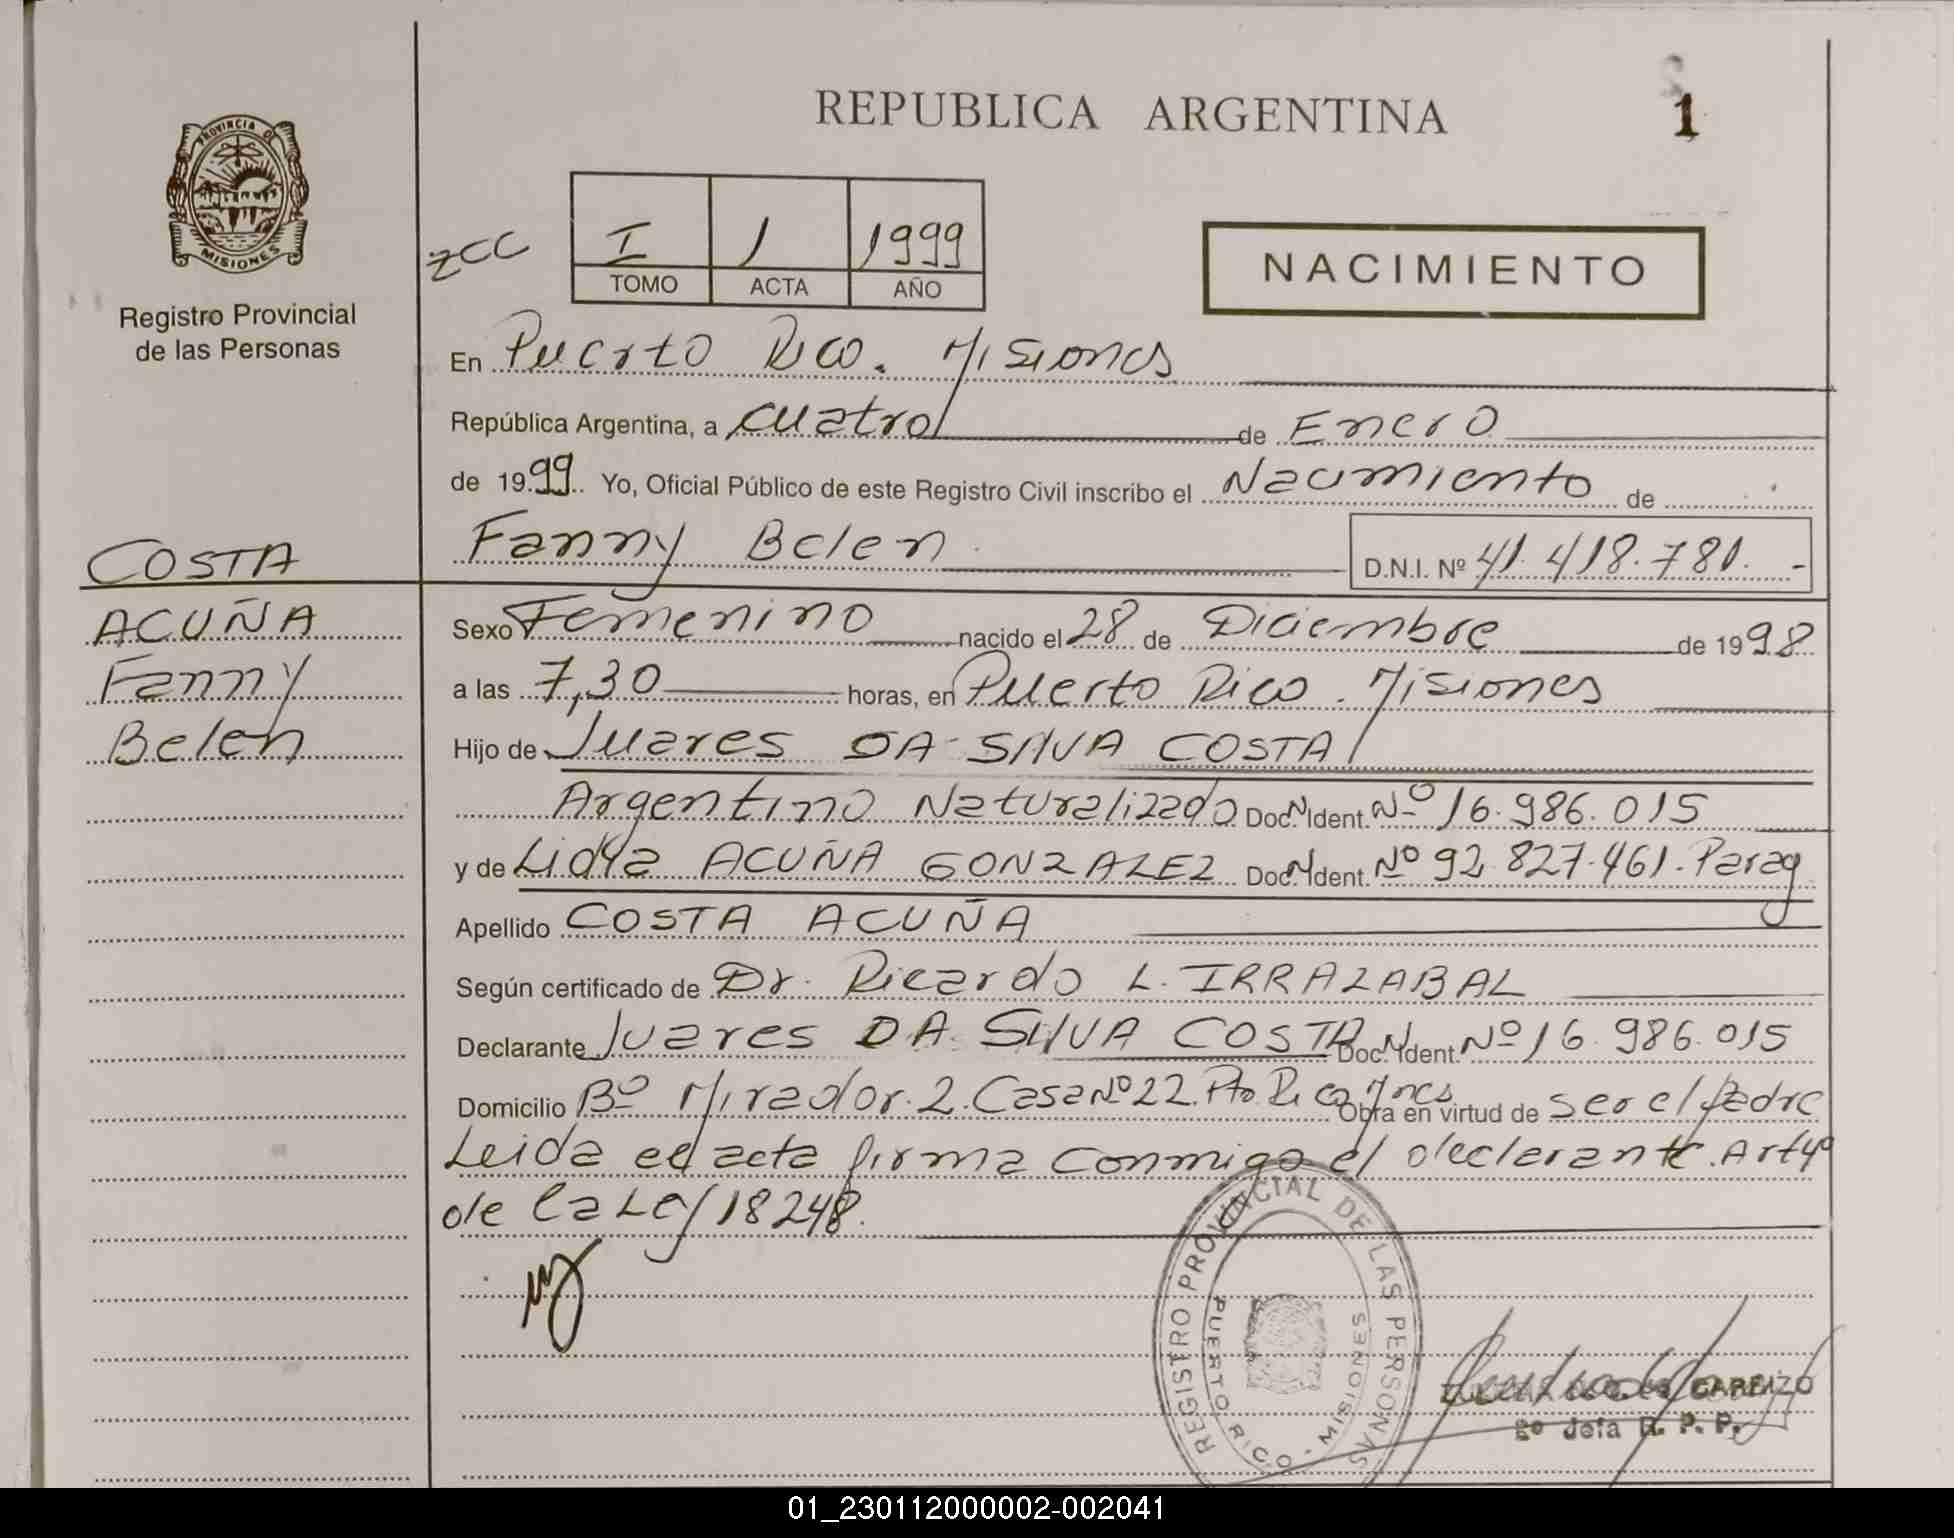 REPUBLICA ARGENTINA
1
PROVINCIA DE MISIONES
Registro Provincial
de las Personas
ZCC
I 1 1999
TOMO ACTA AÑO
NACIMIENTO
En Puerto Rico. Misiones
República Argentina, a cuatro de Enero
de 1999 Yo, Oficial Público de este Registro Civil inscribo el Nacimiento de
Fanny Belen D.N.I. Nº 41.418.781.-
COSTA
ACUÑA
Fanny
Belen
Sexo Femenino nacido el 28 de Diciembre de 1998
a las 7,30 horas, en Puerto Rico. Misiones
Hijo de Juares DA SILVA COSTA
Argentino Naturalizado Doc. N. Ident. Nº 16.986.015
y de Lidya ACUÑA GONZALEZ Doc. N. Ident. Nº 92.827.461. Parag
Apellido COSTA ACUÑA
Según certificado de Dr. Ricardo L. IRRAZABAL
Declarante Juares DA SILVA COSTA Doc. N. Ident. Nº 16.986.015
Domicilio Bº Mirador. 2. Casa Nº 22. Pto Rico Mnes Obra en virtud de ser el padre
Leida el acta firma conmigo el declarante. Art 4º
de la Ley 18248.
REGISTRO PROVINCIAL DE LAS PERSONAS
PUERTO RICO - MISIONES
CARRIZO
2º Jefa R. P. P.
01_230112000002-002041